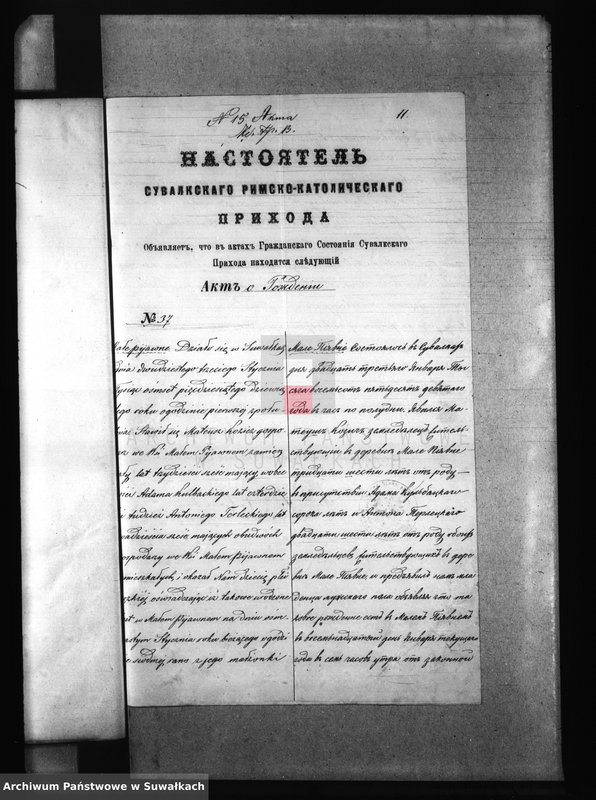 N 15 Акта
11
НАСТОЯТЕЛЬ
СУВАЛКСКАГО РИМСКО-КАТОЛИЧЕСКАГО
ПРИХОДА
Объявляетъ, что въ актахъ Гражданскаго Состоянія Сувалкскаго
Прихода находится слѣдующій
Актъ о Рожденіи
№ 37
Działo się w Suwałkach
dnia dwudziestego trzeciego Stycznia
ośmset pięćdziesiątego dziewią
tego roku o godzinie pierwszej z połu
Stawił się Mateusz Kozic gospo
we Wsi Małem Pijawnem zamiesz
lat trzydzieści sześć mający wobec
Adama Kulbackiego lat czterdzie
tudzież Antoniego Perleckiego lat
sześć mających obudwóch
gospodarzy we Wsi Małem Pijawnem
zamieszkałych, i okazał Nam dziecię płci
oświadczając iż takowe urodzone
w Małem Pijawnem na dniu ośm
nastym Stycznia roku bieżącego o godzi
siódmej rano z jego małżonki
Мале Піявне Состоялось въ Сувалкахъ
дня двадцать третьяго Января Ты
сяча восемьсотъ пятьдесятъ девятаго
года въ часъ по полудни. Явился Ма
теушъ Козицъ земледѣлецъ житель
ствующій въ деревнѣ Мале Піявне
тридцати шести лѣтъ отъ роду —
въ присутствіи Адама Кульбацкаго
сорока лѣтъ и Антона Перлецкаго
двадцати шести лѣтъ отъ роду обоихъ
земледѣльцевъ жительствующихъ въ дерев
нѣ Мале Піявне, и предъявилъ намъ мла
денца мужескаго пола объявляя что та
ковое рожденно есть въ Малемъ Піявнемъ
въ восемнадцатый день Января текущаго
года въ семь часовъ утра отъ законной
Archiwum Państwowe w Suwałkach